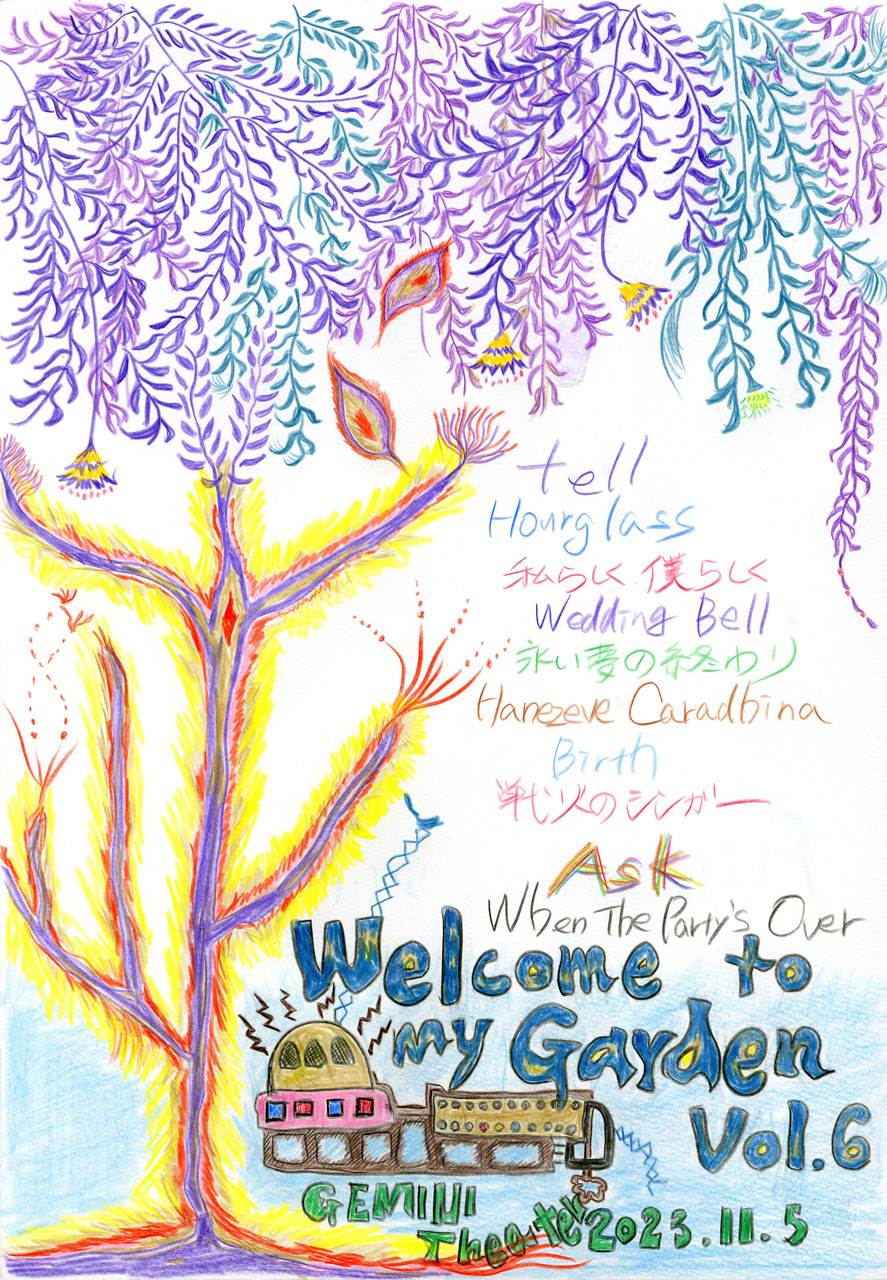 tell
Hourglass
私らしく 僕らしく
Wedding Bell
永い夢の終わり
Hanezeve Caradhina
Birth
戦火のシンガー
Ask
When The Party's Over
Welcome to
my Garden
Vol.6
GEMINI
Theater 2023.11.5